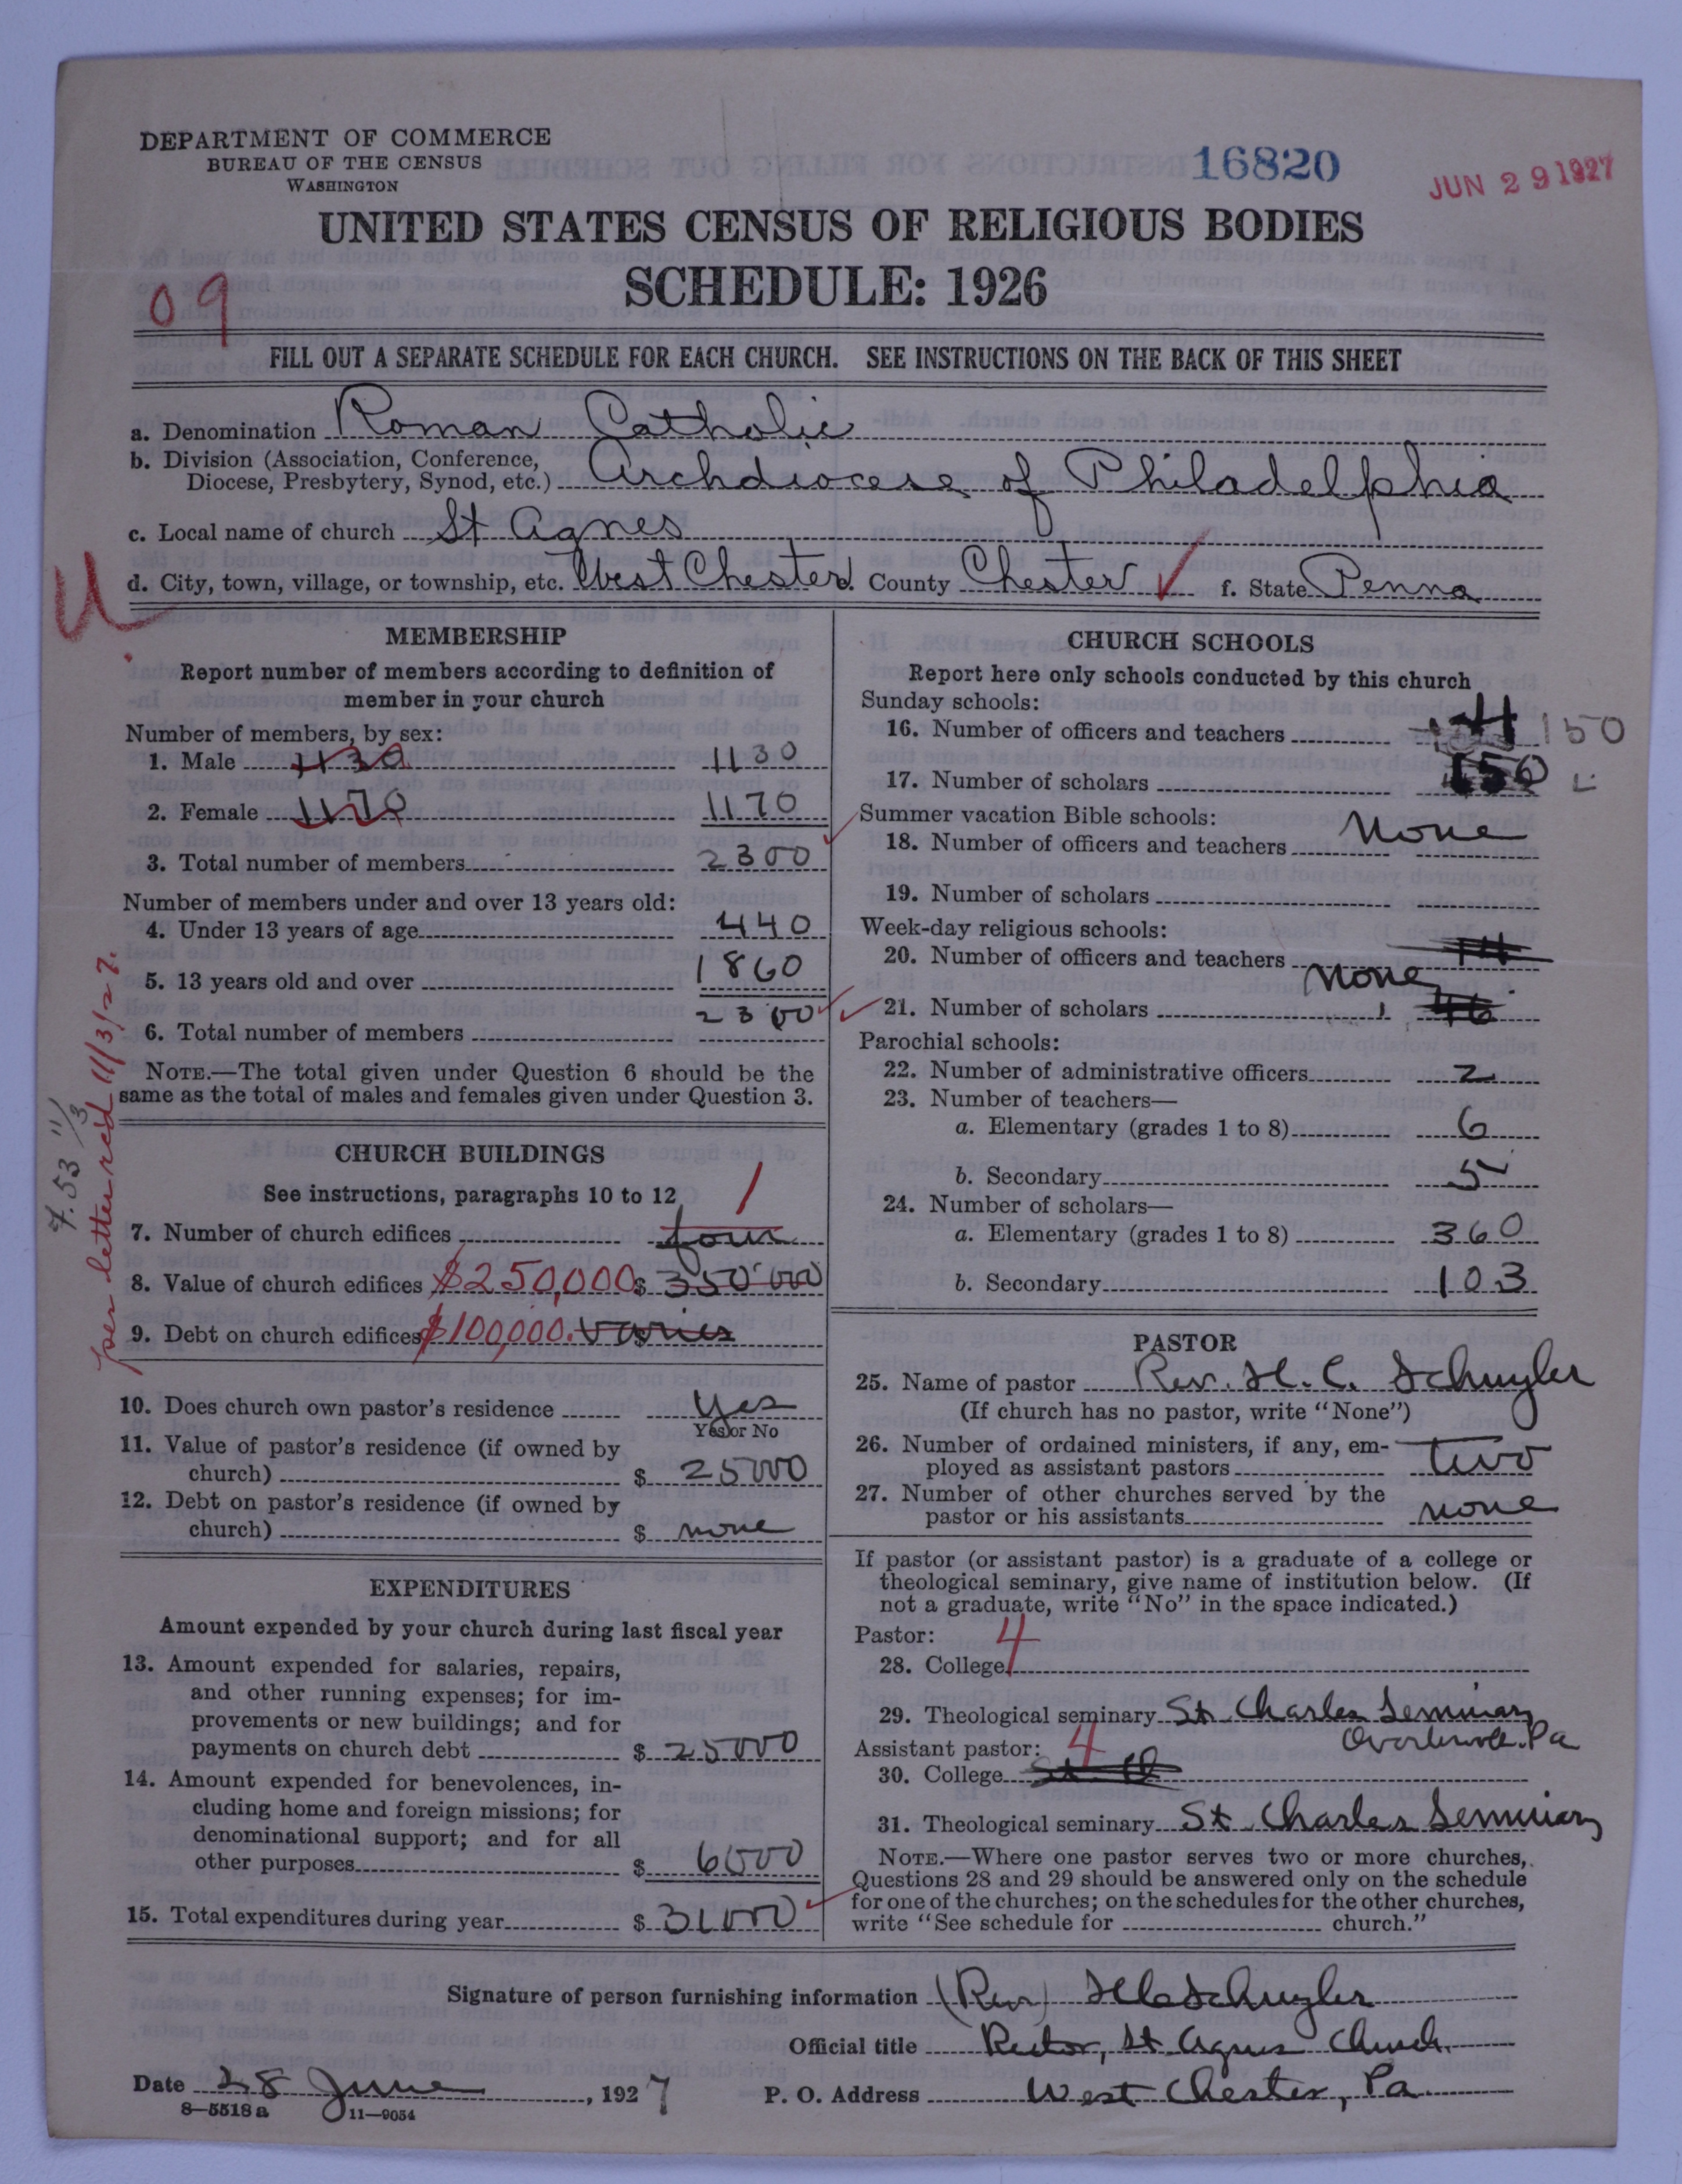 DEPARTMENT OF COMMERCE
BUREAU OF THE CENSUS
WASHINGTON
16820
JUN 29 1927
UNITED STATES CENSUS OF RELIGIOUS BODIES
SCHEDULE: 1926
09
FILL OUT A SEPARATE SCHEDULE FOR EACH CHURCH. SEE INSTRUCTIONS ON THE BACK OF THIS SHEET
a. Denomination Roman Catholic
b. Division (Association, Conference,
Diocese, Presbytery, Synod, etc.) Archdiocese of Philadelphia
c. Local name of church St Agnes
d. City, town, village, or township, etc. West Chester e. County Chester f. State Penna
U
MEMBERSHIP
Report number of members according to definition of
member in your church
Number of members, by sex:
1. Male 1130 1130
2. Female 1170 1170
3. Total number of members 2300
Number of members under and over 13 years old:
4. Under 13 years of age 440
5. 13 years old and over 1860
6. Total number of members 2300
NOTE.—The total given under Question 6 should be the
same as the total of males and females given under Question 3.
7.53 11/3
per letter rec'd 11/3/27.
CHURCH BUILDINGS
See instructions, paragraphs 10 to 12
7. Number of church edifices four 1
8. Value of church edifices $250,000 $ 350000
9. Debt on church edifices $100,000. $ varies
10. Does church own pastor's residence Yes
Yes or No
11. Value of pastor's residence (if owned by
church) $ 25000
12. Debt on pastor's residence (if owned by
church) $ none
EXPENDITURES
Amount expended by your church during last fiscal year
13. Amount expended for salaries, repairs,
and other running expenses; for im-
provements or new buildings; and for
payments on church debt $ 25000
14. Amount expended for benevolences, in-
cluding home and foreign missions; for
denominational support; and for all
other purposes $ 6000
15. Total expenditures during year $ 31000
CHURCH SCHOOLS
Report here only schools conducted by this church
Sunday schools:
16. Number of officers and teachers 150
17. Number of scholars 150
Summer vacation Bible schools:
18. Number of officers and teachers None
19. Number of scholars
Week-day religious schools:
20. Number of officers and teachers 14
none
21. Number of scholars 46
Parochial schools:
22. Number of administrative officers 2
23. Number of teachers—
a. Elementary (grades 1 to 8) 6
b. Secondary 5
24. Number of scholars—
a. Elementary (grades 1 to 8) 360
b. Secondary 103
PASTOR
25. Name of pastor Rev. H. C. Schuyler
(If church has no pastor, write "None")
26. Number of ordained ministers, if any, em-
ployed as assistant pastors two
27. Number of other churches served by the
pastor or his assistants none
If pastor (or assistant pastor) is a graduate of a college or
theological seminary, give name of institution below. (If
not a graduate, write "No" in the space indicated.)
Pastor: 4
28. College
29. Theological seminary St Charles Seminary
Overbrook. Pa
Assistant pastor: 4
30. College St Ch
31. Theological seminary St. Charles Seminary
NOTE.—Where one pastor serves two or more churches,
Questions 28 and 29 should be answered only on the schedule
for one of the churches; on the schedules for the other churches,
write "See schedule for church."
Signature of person furnishing information (Rev) H C Schuyler
Official title Rector, St. Agnes Church.
Date 28 June, 1927 P. O. Address West Chester, Pa
8—5518a 11—9054